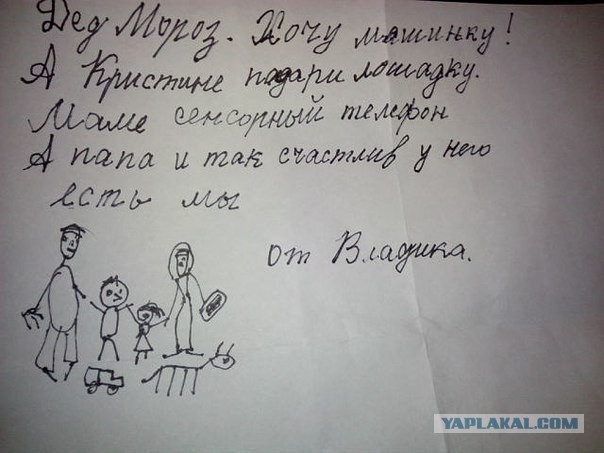 Дед Мороз. Хочу машинку!
А Кристине подари лошадку.
Маме сенсорный телефон
А папа и так счастлив у него
есть мы
от Владика.
YAPLAKAL.COM